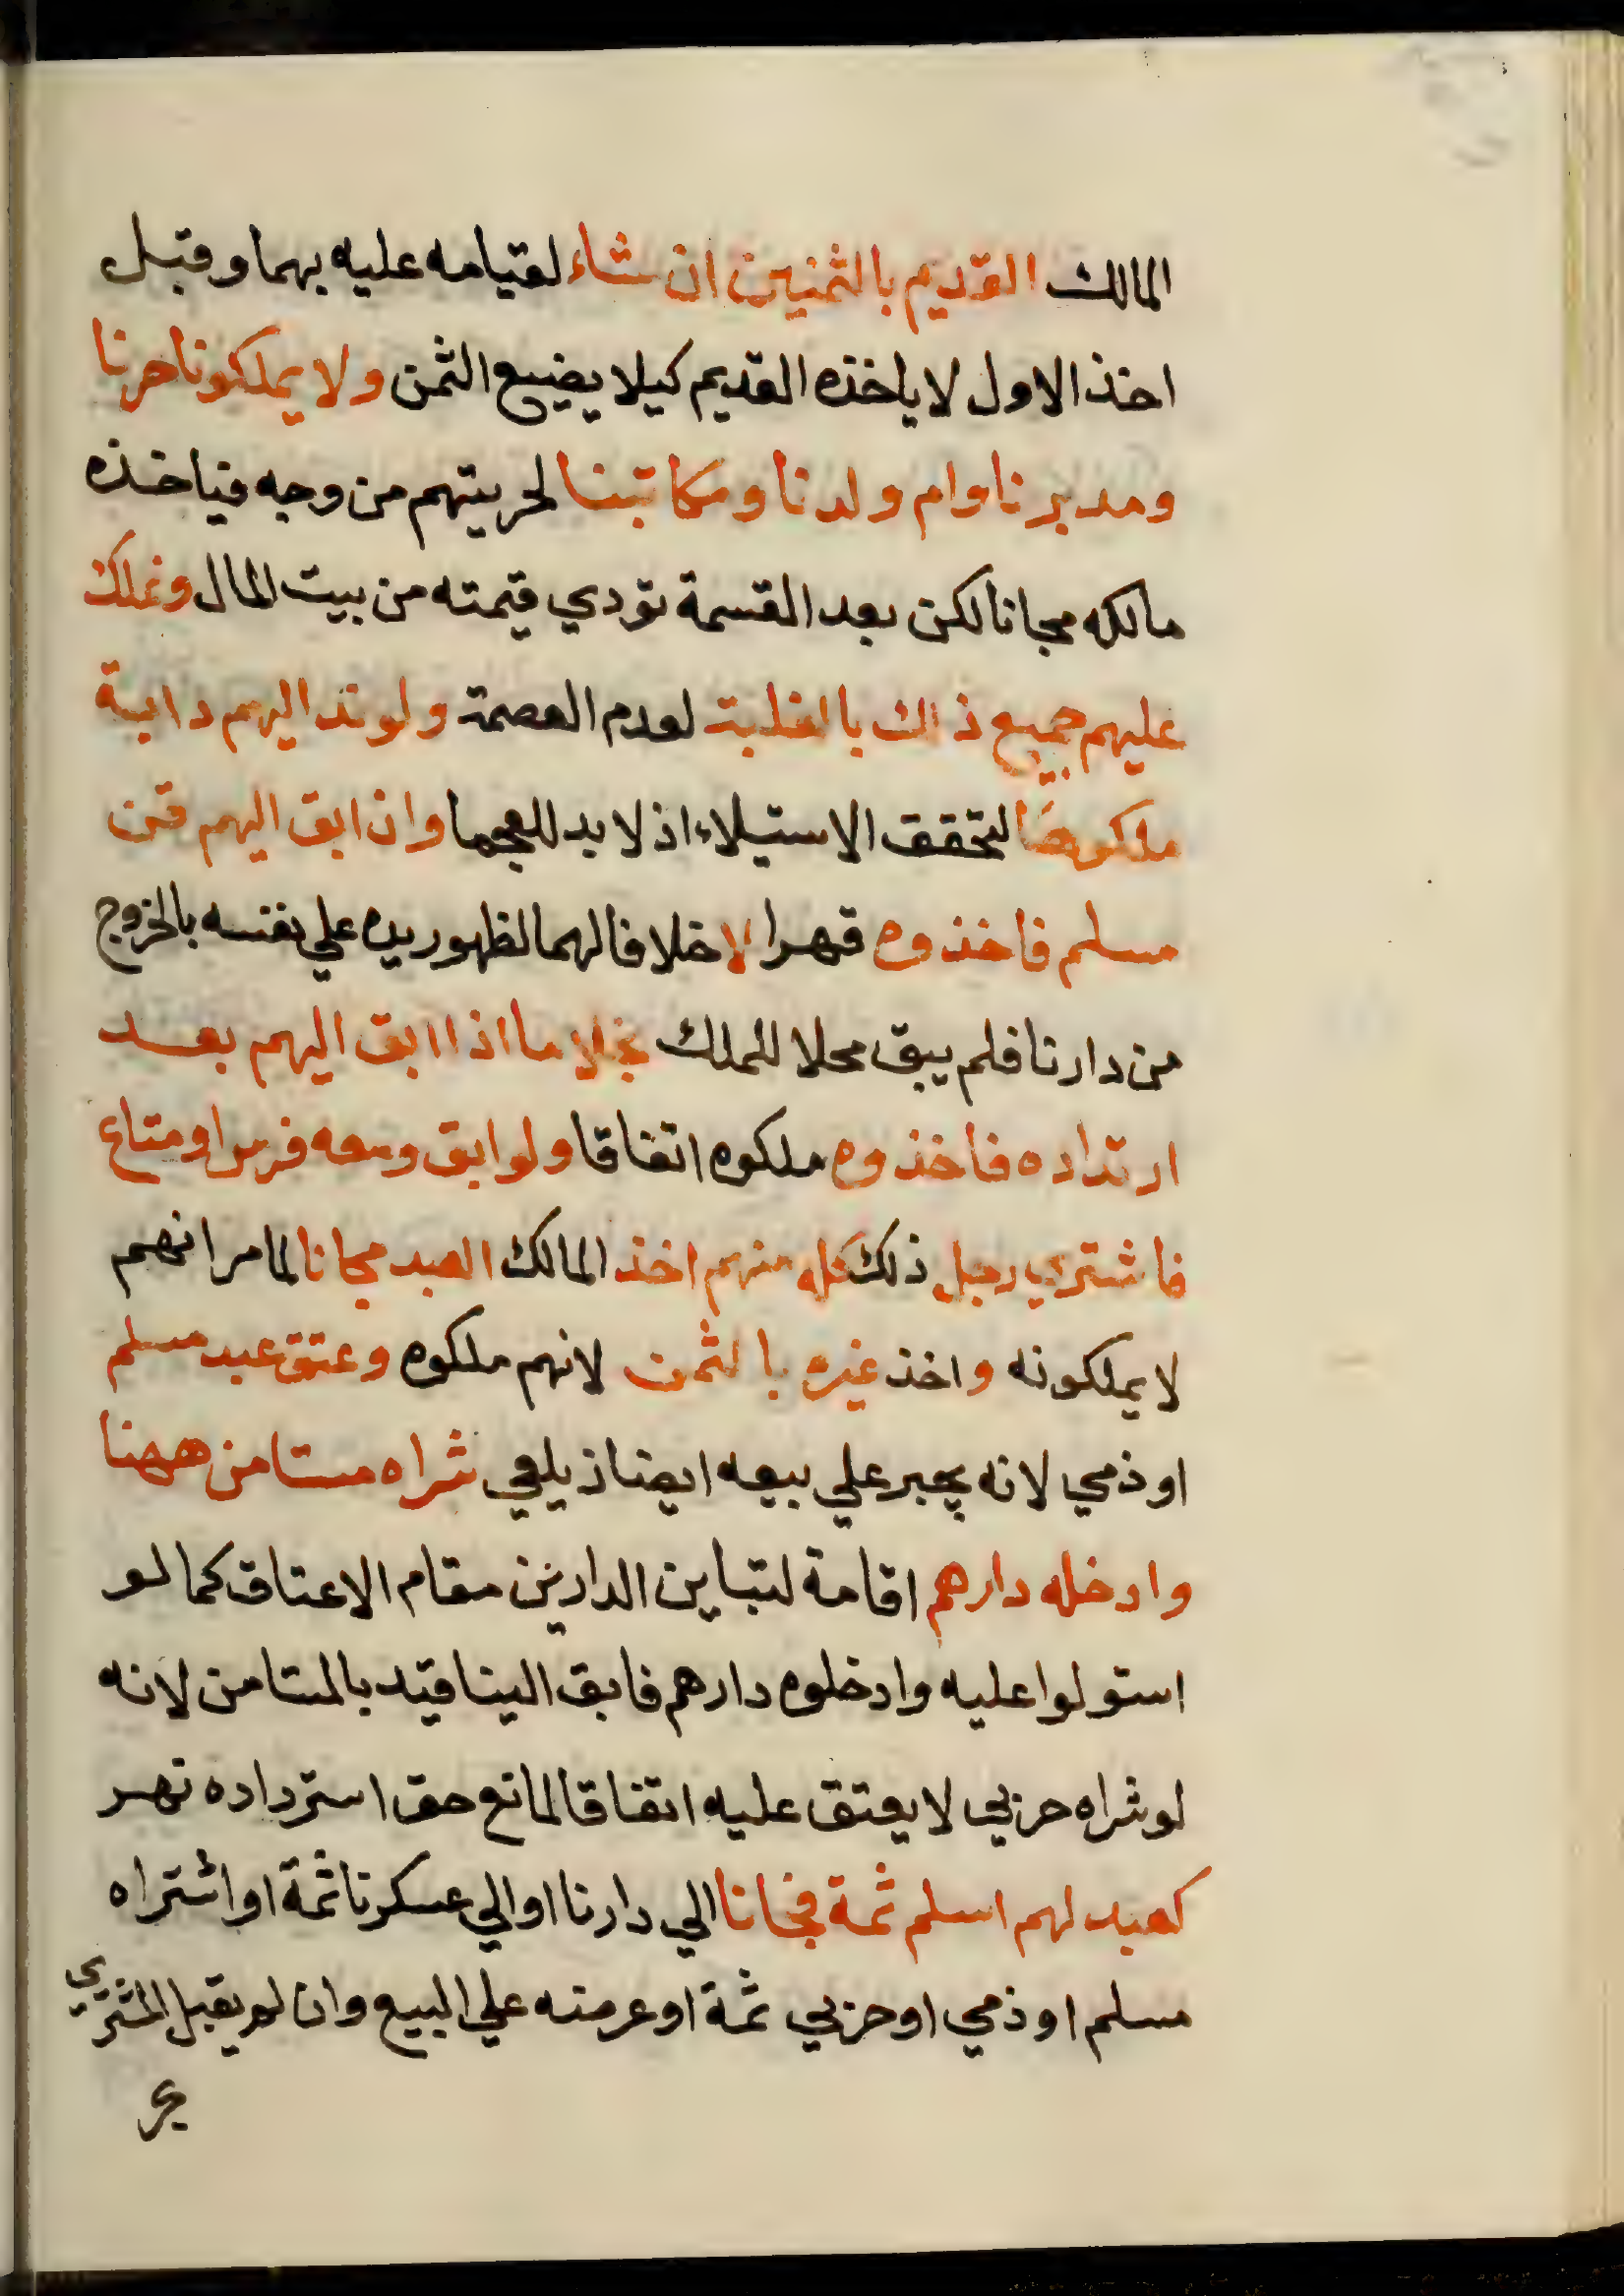 المالك القديم بالثمنين ان شاء لقيامه عليه بهما وقبل
اخذ الاول لا ياخذه القديم كيلا يضيع الثمن ولا يملكونا حرنا
ومدبرنا وام ولدنا ومكاتبنا لحريتهم من وجه فياخذه
مالكه مجانا لكن بعد القسمة تودي قيمته من بيت المال ونملك
عليهم جميع ذلك بالغلبة لعدم العصمة ولو ند اليهم دابة
ملكوها لتحقق الاستيلاء اذ لا يد للعجما وان ابق اليهم قن
مسلم فاخذوه قهرا لا خلافا لهما لظهور يده علي نفسه بالخروج
من دارنا فلم يبق محلا للملك بخلاف ما اذا ابق اليهم بعد
ارتداده فاخذوه ملكوه اتفاقا ولو ابق ومعه فرس او متاع
فاشتري رجل ذلك كله منهم اخذ المالك العبد مجانا لما مر انهم
لا يملكونه واخذ غيره بالثمن لانهم ملكوه وعتق عبد مسلم
او ذمي لانه يجبر علي بيعه ايضا زيلعي شراه مستامن ههنا
وادخله دارهم اقامة لتباين الدارين مقام الاعتاق كما لو
استولوا عليه وادخلوه دارهم فابق الينا قيد بالمستامن لانه
لو شراه حربي لا يعتق عليه اتفاقا لمانع حق استرداده نهر
كعبد لهم اسلم ثمة فجانا الي دارنا او الي عسكرنا ثمة او اشتراه
مسلم او ذمي او حربي ثمة او عرضه علي البيع وان لم يقبل المشتري